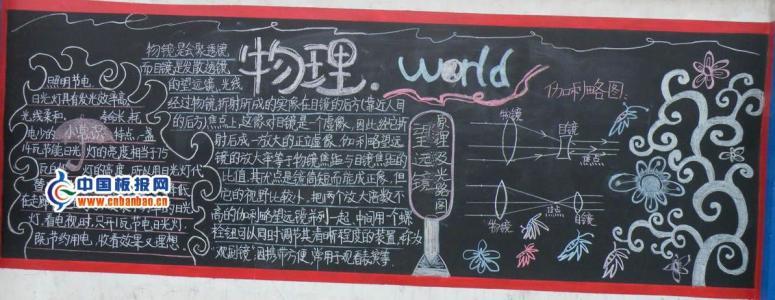 物理.world
照明节电
日光灯具有发光效率高、
光线柔和、寿命长、耗
电少的特点,一盏
14瓦节能日光灯的亮度相当于75
灯的亮度,所以日光灯代
灯,看电视时,只开1瓦节电日光灯,
既节约用电,收看效果又理想。
小常识
中国板报网
www.cnbanbao.cn
物镜是会聚透镜
而目镜是发散透镜
的望远镜。光线
经过物镜折射所成的实像在目镜的后方(靠近人目
的后方)焦点上,这像对目镜是一个虚像,因此经它折
射后成一放大的正立虚像。伽利略望远
镜的放大率等于物镜焦距与目镜焦距的
比值。其优点是镜筒短而能成正像,但
它的视野比较小。把两个放大倍数不
高的伽利略望远镜并列一起、中间用一个螺
栓钮可以同时调节其清晰程度的装置,称为
"观剧镜",因携带方便,常用于观看表演等。
望远镜
原理及光路图
伽利略图:
物镜
目镜
焦点
物镜
焦点
目镜